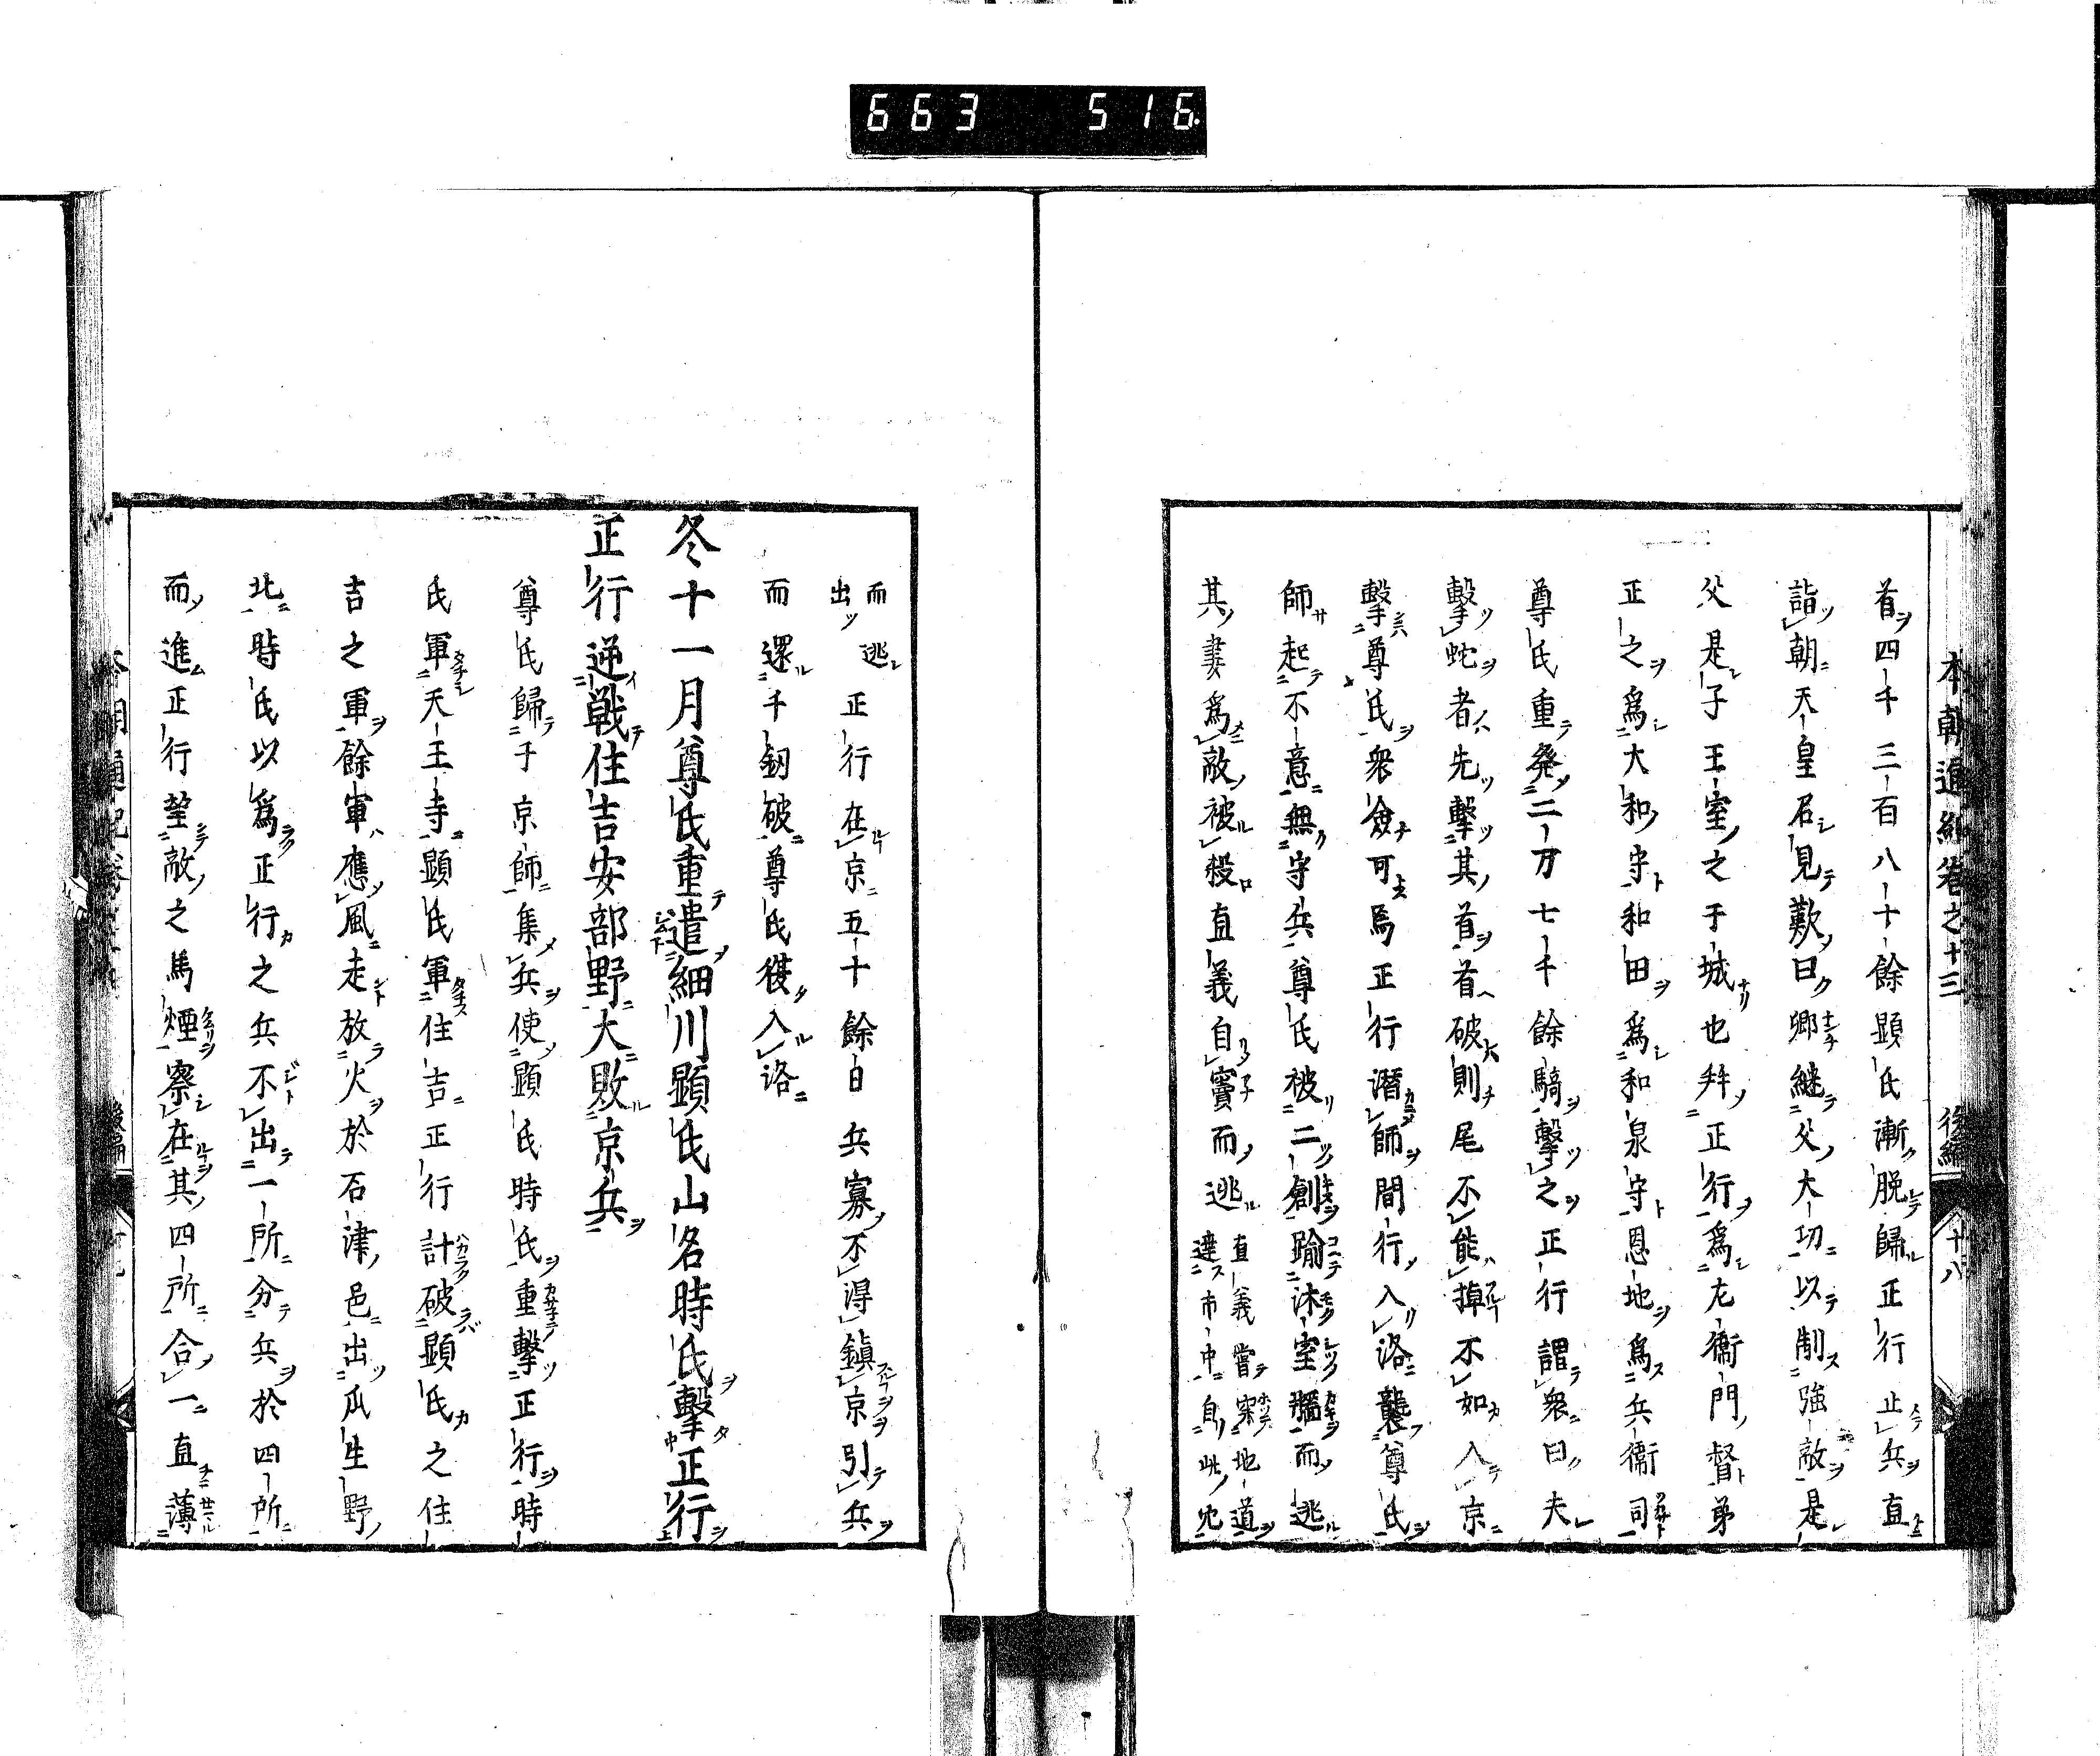 663 516
本朝通紀卷之十三 後編 十八
首四千三百八十餘顕氏漸脱歸正行止兵直
詣朝天皇召見歎曰卿継父大功以制強敵是
父是子王室之于城也拜正行爲左衞門督弟
正之爲大和守和田爲和泉守恩地爲兵衞司
尊氏重発二万七千餘騎擊之正行謂衆曰夫
擊蛇者先擊其首首破則尾不能掉不如入京
擊尊氏衆僉可焉正行潛師間行入洛襲尊氏
師起不意無守兵尊氏被二創踰沐室牖而逃
其妻爲敵被殺直義自竇而逃直義嘗穿地道
達市中自此穴
而逃
出正行在京五十餘日兵寡不得鎮京引兵
而還千釼破尊氏復入洛
冬十一月尊氏重遣細川顕氏山名時氏擊正行
正行逆戦住吉安部野大敗京兵
尊氏歸于京師集兵使顕氏時氏重擊正行時
氏軍天王寺顕氏軍住吉正行計破顕氏之住
吉之軍餘軍應風走放火於石津邑出瓜生野
北時氏以爲正行之兵不出一所分兵於四所
而進正行望敵之馬煙察在其四所合一直薄